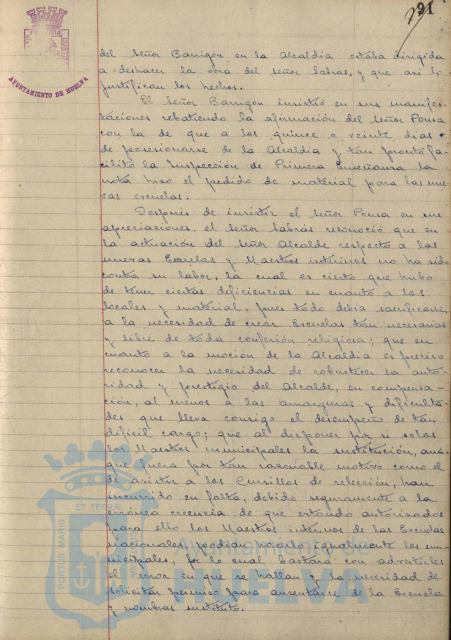 291
AYUNTAMIENTO DE HUELVA
del Señor Barrigón en la Alcaldia estaba dirigida
a deshacer la obra del señor Labras, y que asi lo
justifican los hechos.
El Señor Barrigón insistió en sus manifes-
taciones rebatiendo la afirmación del señor Ponsa
con la de que a los quince o veinte dias
de posesionarse de la Alcaldia y tan pronto fa-
cilitó la Inspección de Primera Enseñanza la
nota hizo el pedido de material para las nue-
vas escuelas.
Después de insistir el señor Ponsa en sus
apreciaciones, el señor Labras reconoció que en
la actuación del señor Alcalde respecto a las
nuevas Escuelas y Maestros interinos no ha sido
contra su labor, la cual es cierto que hubo
de tener ciertas deficiencias en cuanto a los
locales y material, pues todo debia sacrificarse
a la necesidad de crear Escuelas tan necesarias
y libre de toda confesión religiosa; que en
cuanto a la moción de la Alcaldia es preciso
reconocer la necesidad de robustecer la auto-
ridad y prestigio del Alcalde, en compensa-
ción, al menos a las amarguras y dificulta-
des que lleva consigo el desempeño de tan
dificil cargo; que al disponer por si solos
los Maestros municipales la sustitución, aun-
que fuera por tan razonable motivo como el
de asistir a los Cursillos de selección, han
incurrido en falta, debido seguramente a la
errónea creencia de que estando autorizados
para ello los Maestros interinos de las Escuelas
nacionales, podian hacerlo igualmente los mu-
nicipales, por lo cual bastará con advertirles
el error en que se hallan y la necesidad de
solicitar permiso para ausentarse de la Escuela
y nombrar sustituto.
PORTUS MARIS ET TERRAE
Ayuntamiento de
HUELVA